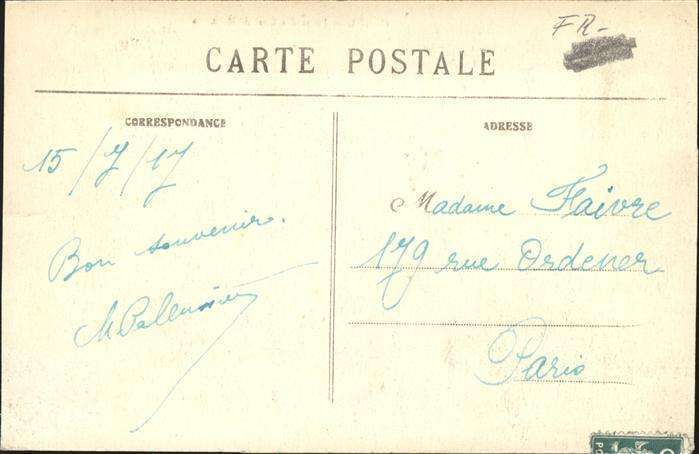 FR-
CARTE POSTALE
CORRESPONDANCE
15/7/17
Bon souvenir.
ADRESSE
Madame Faivre
179 rue Ordener
Paris